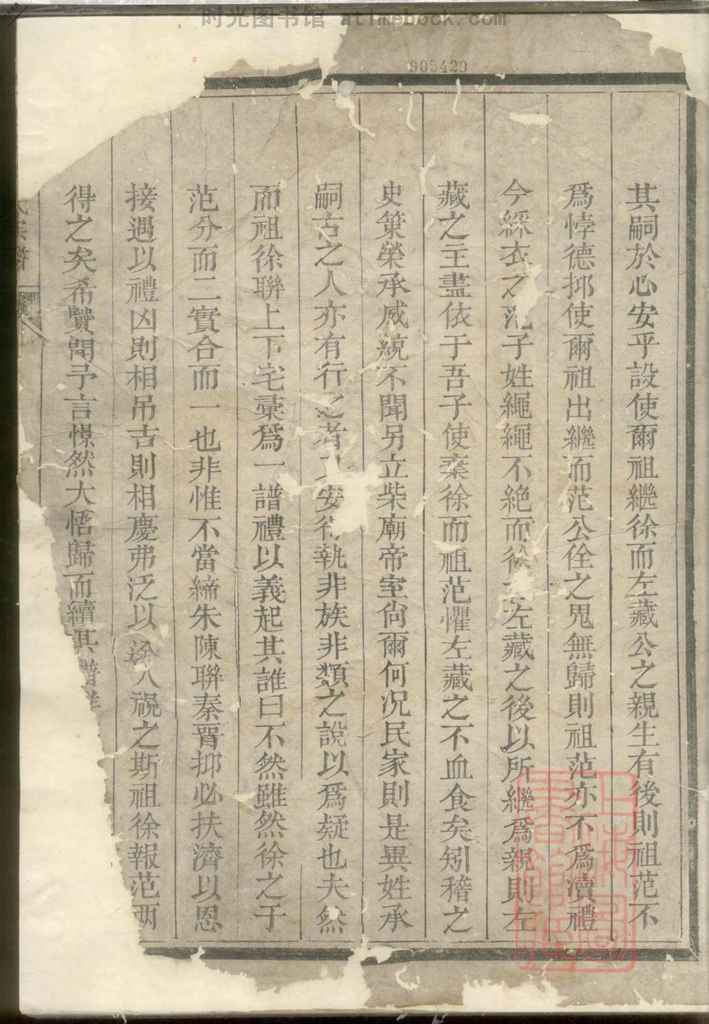 时光图书馆 atimebook.com
905420
其嗣於心安乎設使爾祖繼徐而左藏公之親生有後則祖范不
爲悖德抑使爾祖出繼而范公佺之鬼無歸則祖范亦不爲瀆禮
今綵衣之范子姓繩繩不絶而徐 左藏之後以所繼爲親則左
藏之主盡依于吾子使棄徐而祖范懼左藏之不血食矣矧稽之
史策榮承威統不聞另立柴廟帝室尙爾何况民家則是異姓承
嗣古之人亦有行之者 安得執非族非類之說以爲疑也夫然
而祖徐聯上下宅彙爲一譜禮以義起其誰曰不然雖然徐之于
范分而二實合而一也非惟不當締朱陳聯秦晋抑必扶濟以恩
接遇以禮凶則相吊吉則相慶弗泛以途人視之斯祖徐報范兩
得之矣希贊聞予言憬然大悟歸而續其譜
氏族譜